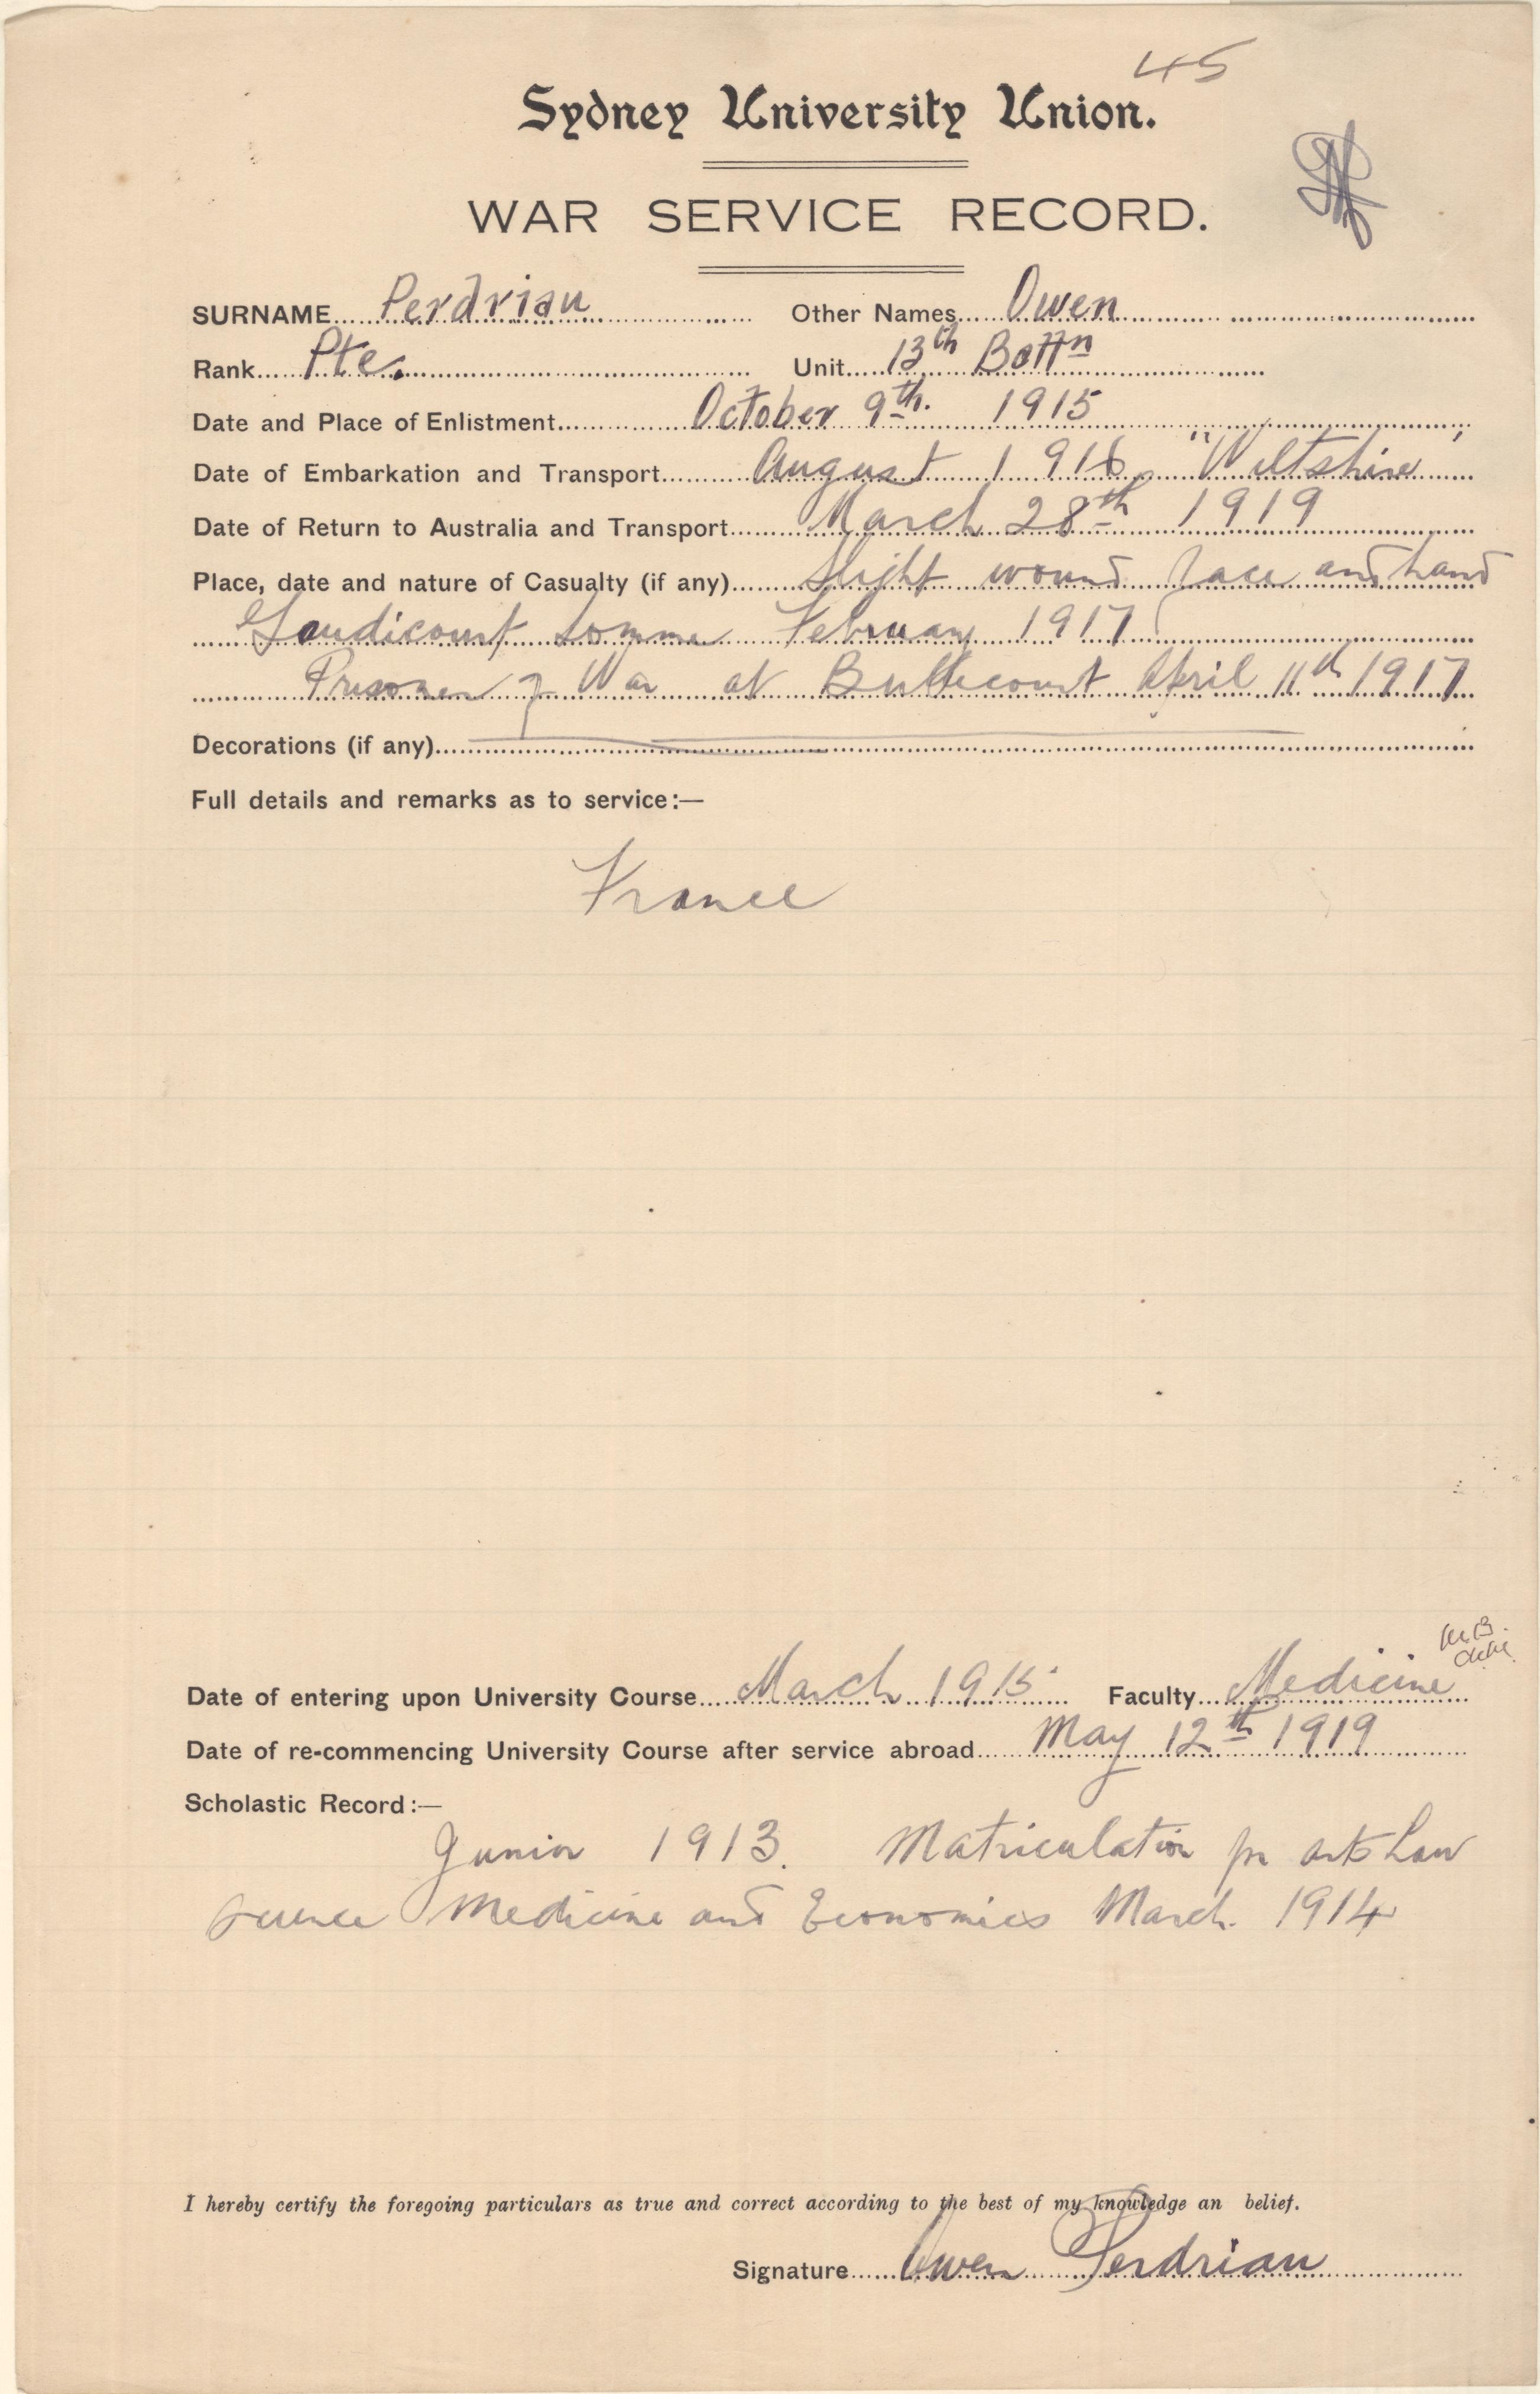 45
Sydney University Union.
WAR SERVICE RECORD.
SURNAME Perdriau Other Names Owen
Rank Pte. Unit 13th Battn
Date and Place of Enlistment October 9th. 1915
Date of Embarkation and Transport August 1916 "Wiltshire"
Date of Return to Australia and Transport March 28th 1919
Place, date and nature of Casualty (if any) Slight wound face and hand
Somme February 1917
Prisoner of War at Bullecourt April 11th 1917
Decorations (if any)
Full details and remarks as to service:—
France
M.B.
Date of entering upon University Course March 1915 Faculty Medicine
Date of re-commencing University Course after service abroad May 12th 1919
Scholastic Record:—
Junior 1913. Matriculation for arts Law
Science Medicine and Economics March. 1914
I hereby certify the foregoing particulars as true and correct according to the best of my knowledge an belief.
Signature Owen Perdriau